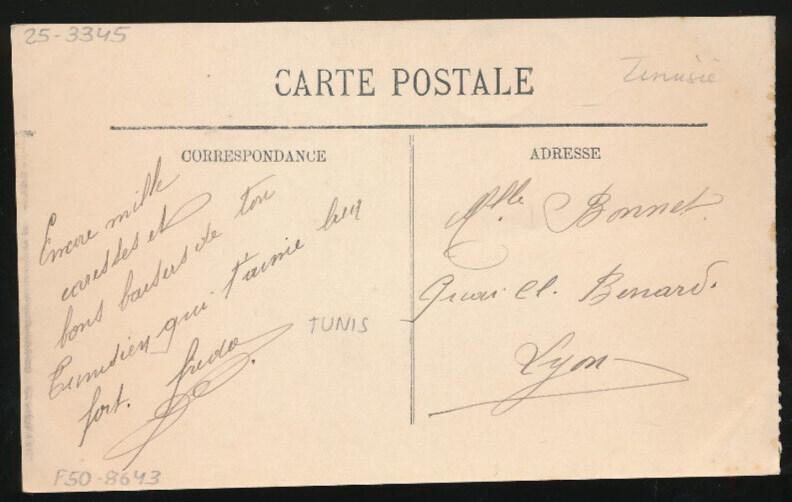 25-3345
CARTE POSTALE
Tunisie
CORRESPONDANCE
Encore mille
caresses et
bons baisers de ton
Tunisien qui t'aime bien
fort.
TUNIS
F50-8643
ADRESSE
Mlle Bonnet.
Quai Cl. Bernard.
Lyon